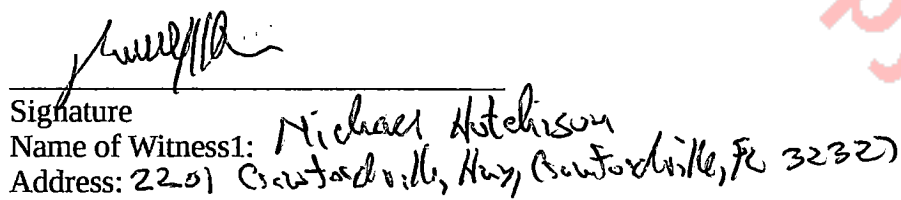 Signature
Name of Witness1: Michael Hutchison
Address: 2201 Crawfordville, Hwy, Crawfordville, FL 32327